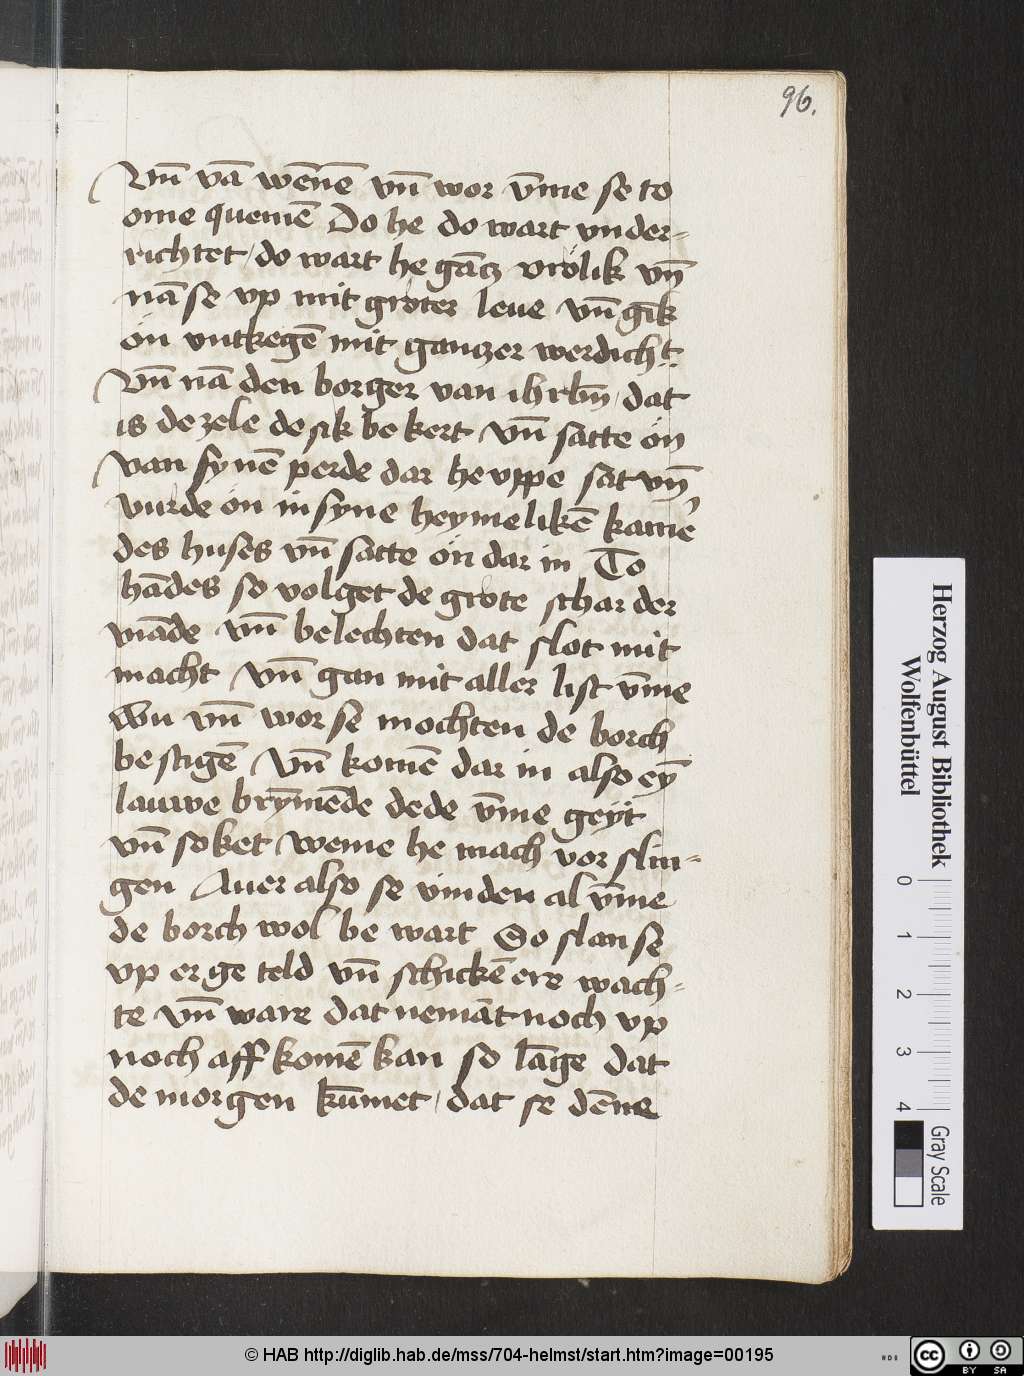 96.
Vn̄ vā wēnē vn̄ wor v̄me se to
ome quemē Do he do wart vnder-
richtet / do wart he gācz vrolik vn̄
nā se vp mit groter leue vn̄ gīk
ön vntkegē mit ganczer werdicht.
Vn̄ nā den borger van ihrlm̄ / dat
is de zele de sik be kert vn̄ satte ön
van synē perde dar he vppe sat vn̄
vurde ön in syne heymelikē kamē
des huses vn̄ satte ön dar in To
hādes so volget de grote schar der
viāde vn̄ belechten dat slot mit
macht vn̄ gan mit aller list v̄me
Wu vn̄ wor se mochten de borch
bestigē vn̄ komē dar in also eȳ
lauwe brȳmēde dede v̄me geyt
vn̄ soket weme he mach vor slin-
gen Auer also se vinden al v̄me
de borch wol be wart So slan se
vp er ge teld vn̄ schickē ere wach-
te vn̄ ware dat nemāt noch vp
noch aff komē kan so lāge dat
de morgen kūmet / dat se dēne
Herzog August Bibliothek
Wolfenbüttel
0 1 2 3 4
Gray Scale
© HAB http://diglib.hab.de/mss/704-helmst/start.htm?image=00195
HAB
cc BY SA